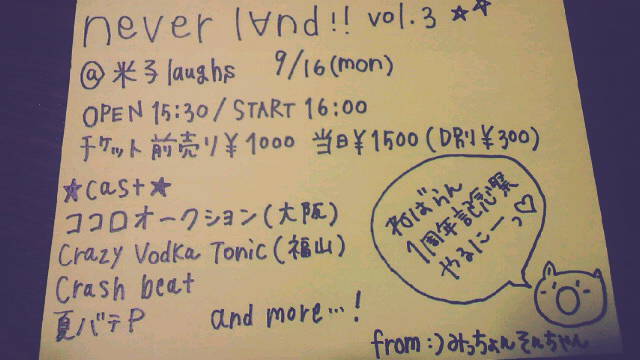 never l∀nd!! vol.3 ☆☆
@米子laughs 9/16(mon)
OPEN 15:30/START 16:00
チケット前売り¥1000 当日¥1500(D別¥300)
★cast★
ココロオークション(大阪)
Crazy Vodka Tonic(福山)
Crash beat
夏バテP and more…!
ねばらん
1周年記念祭
やるにーっ♡
from:)みっちょんそんちゃん